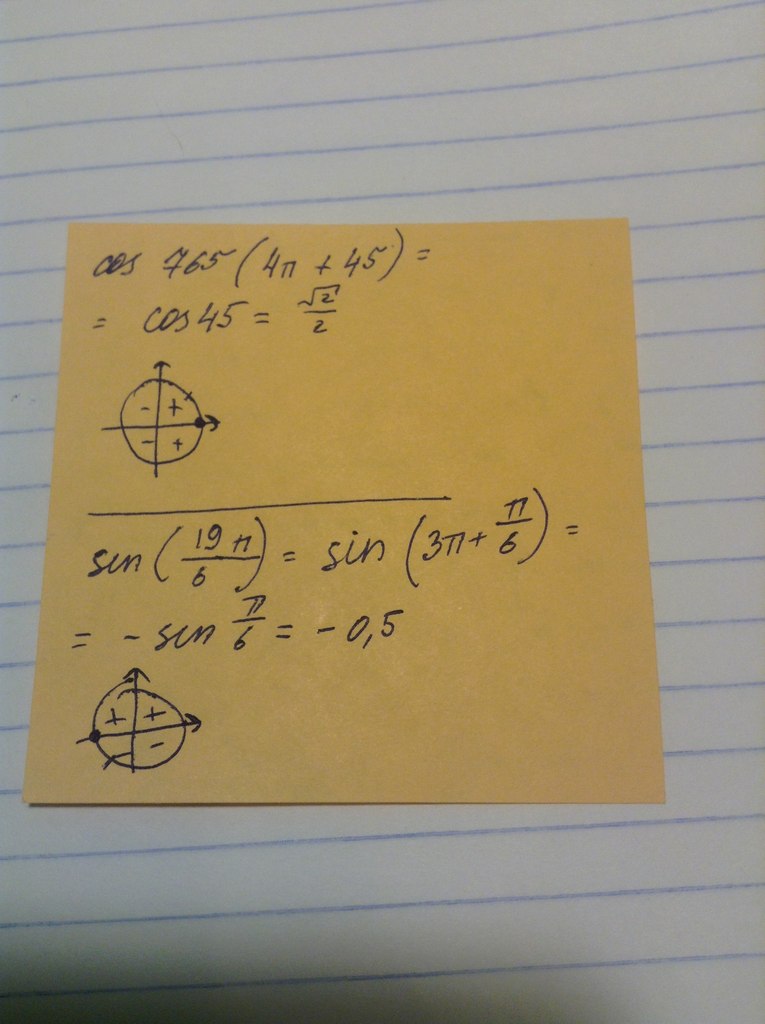 cos 765 (4π + 45) =
= cos 45 = √2/2
- +
- +
sin (19π/6) = sin (3π + π/6) =
= - sin π/6 = - 0,5
+ +
- -